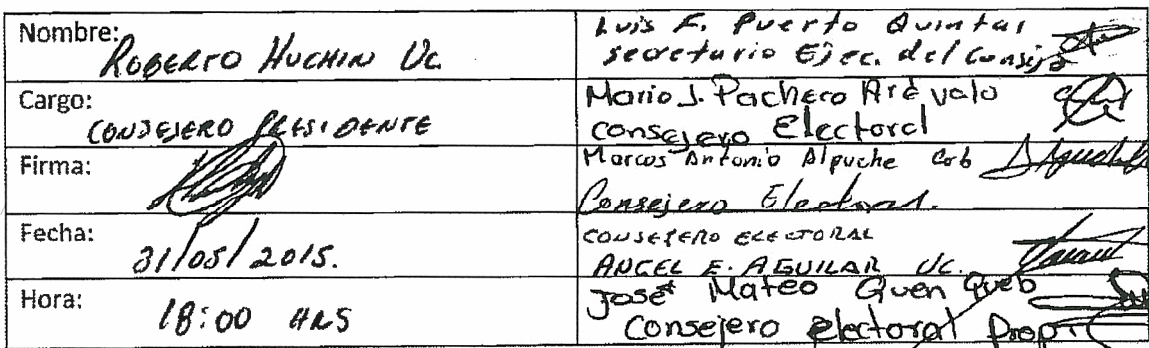 Nombre: ROBERTO HUCHIN UC.
Luis F. Puerto Quintal
secretario Ejec. del Consejo
Cargo: CONSEJERO PRESIDENTE
Mario J. Pacheco Arévalo
consejero Electoral
Firma:
Marcos Antonio Alpuche Cob
Consejero Electoral.
Fecha: 31/05/2015.
CONSEJERO ELECTORAL
ANGEL E. AGUILAR UC.
Hora: 18:00 HRS
José Mateo Quen Queb
Consejero electoral Propt